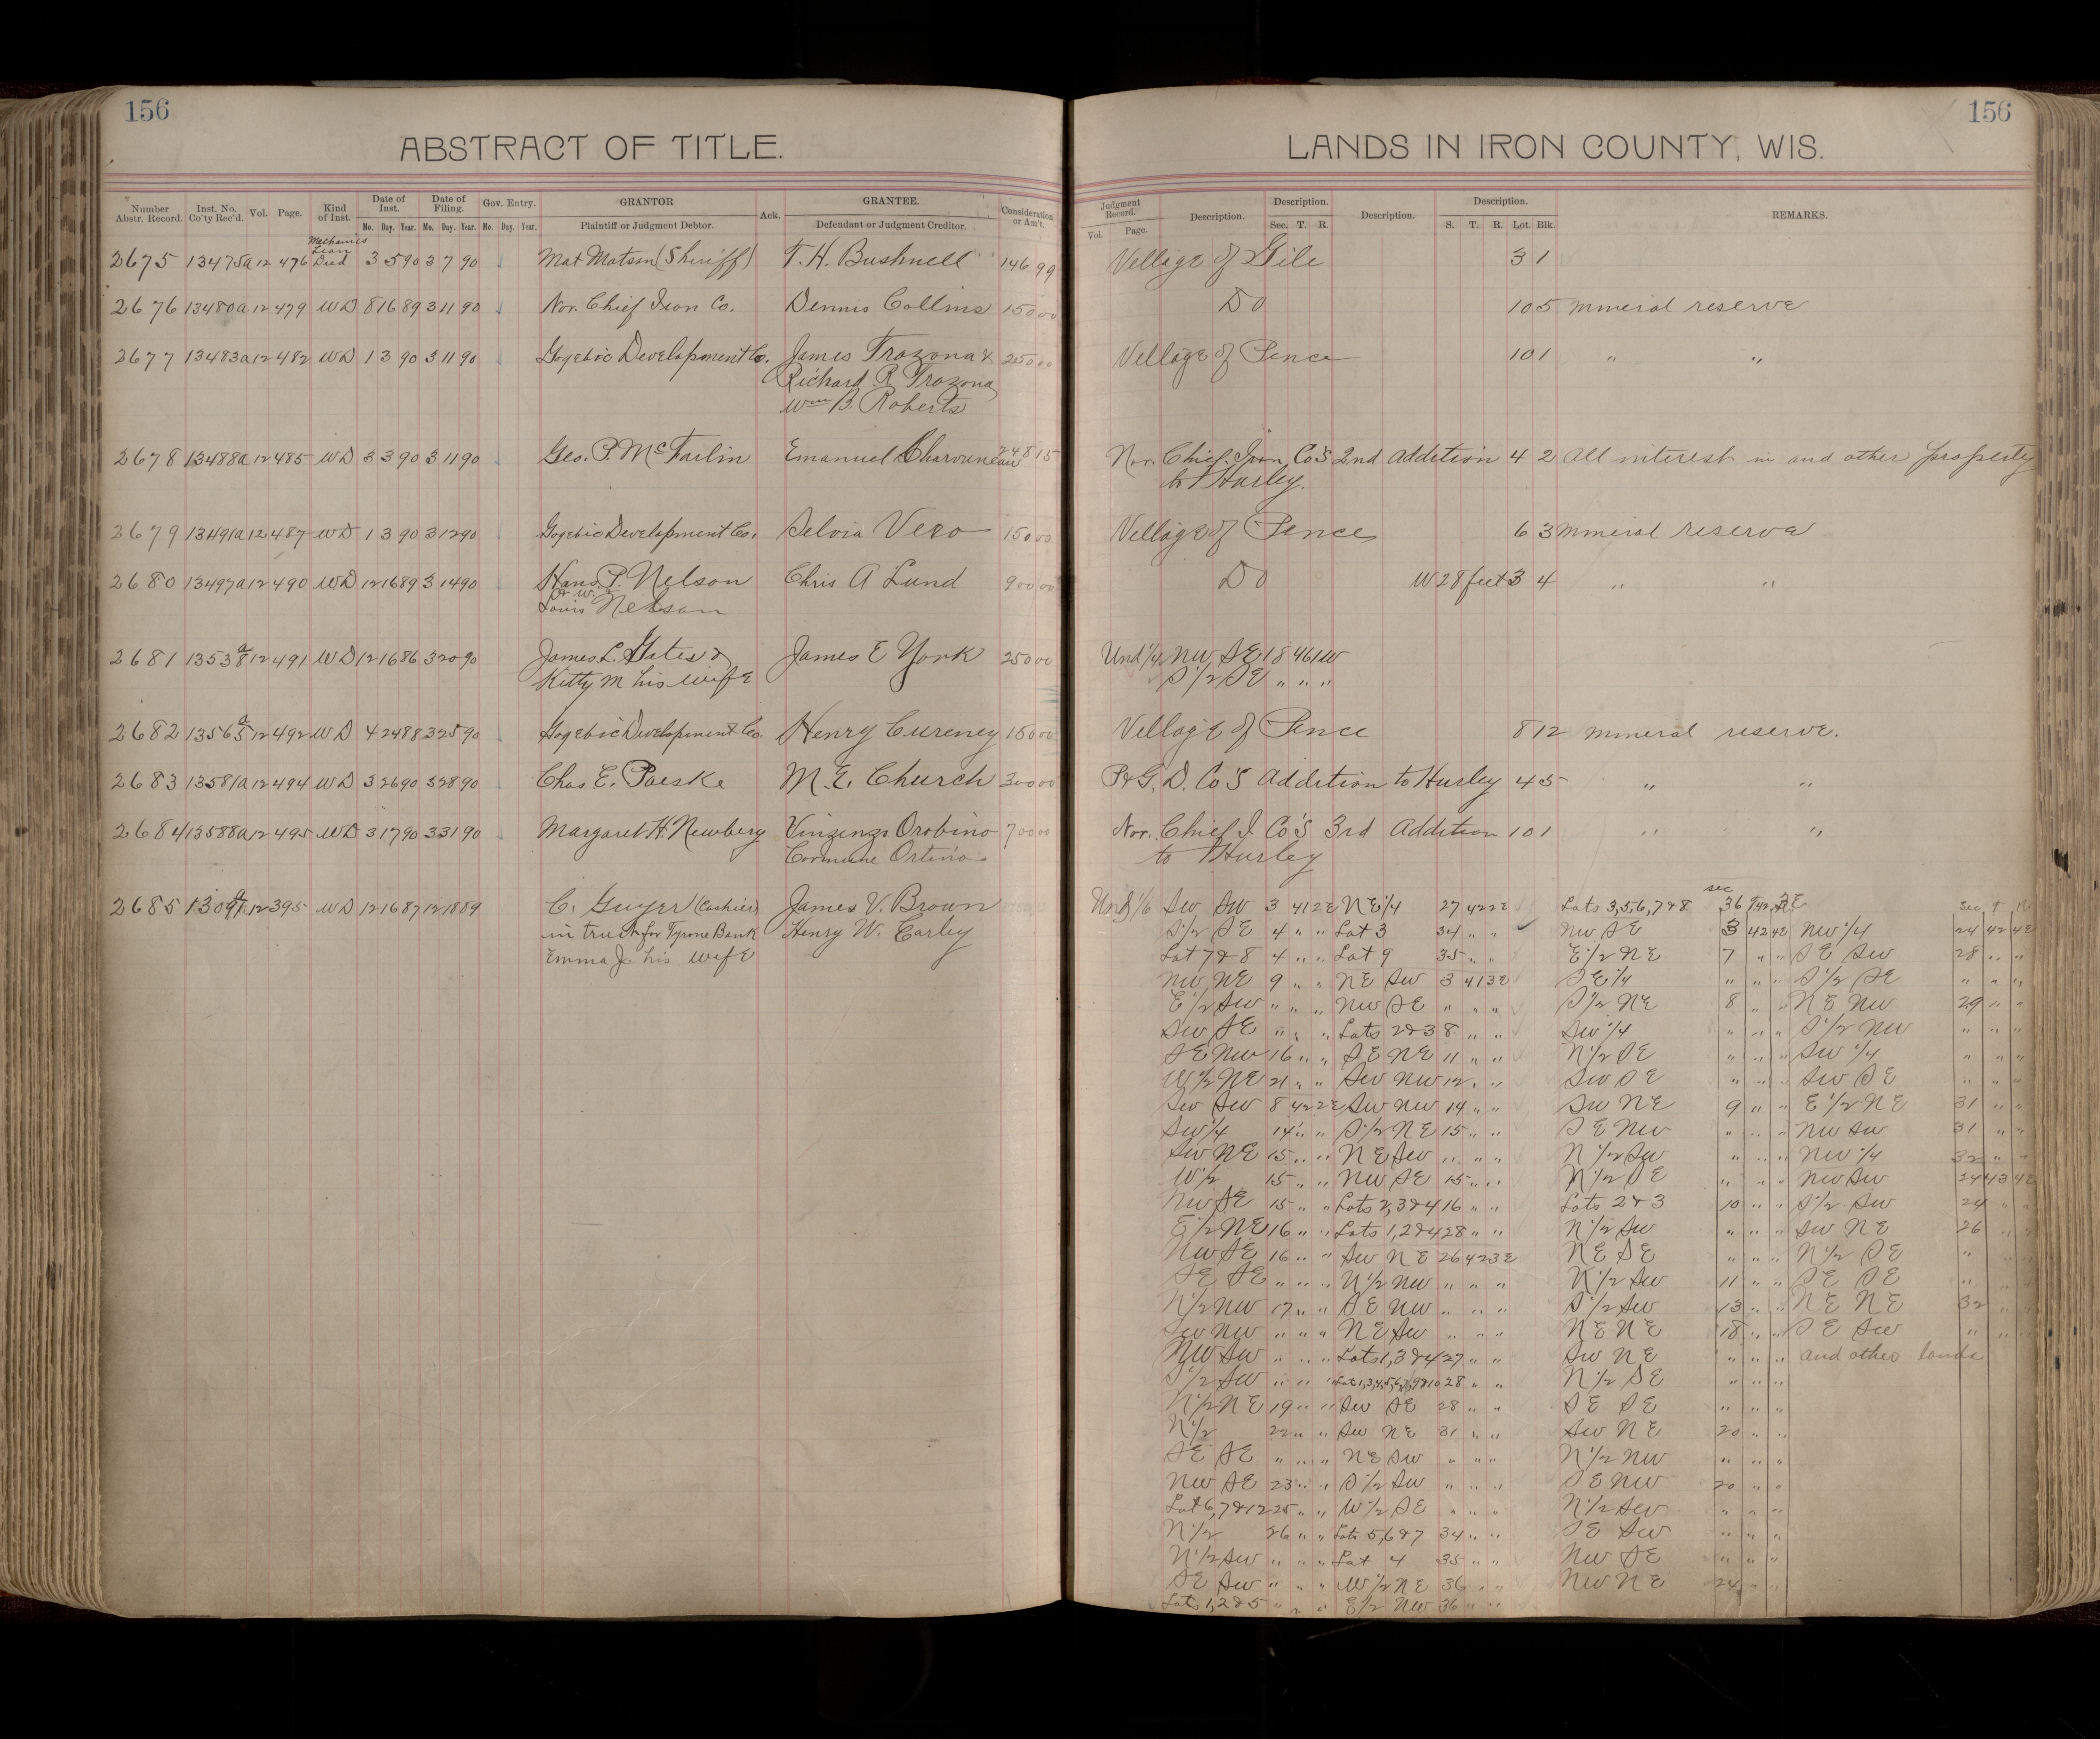 156
156
ABSTRACT OF TITLE.
LANDS IN IRON COUNTY, WIS.
Number Abstr. Record. Inst. No. Co'ty Rec'd. Vol. Page. Kind of Inst. Date of Inst. Mo. Day. Year. Date of Filing. Mo. Day. Year. Gov. Entry. Mo. Day. Year. GRANTOR Plaintiff or Judgment Debtor. Ack. GRANTEE. Defendant or Judgment Creditor. Consideration or Am't.
Judgment Record. Vol. Page. Description. Description. Sec. T. R. Description. Description. S. T. R. Lot. Blk. REMARKS.
Mechanics Lean
2675 13475a 12 476 Deed 3 5 90 3 7 90 Mat Matson (Sheriff) T. H. Bushnell 146 99 Village of Gile 3 1
2676 13480a 12 479 WD 8 16 89 3 11 90 Nor. Chief Iron Co. Dennis Collins 150 00 Do 10 5 mineral reserve
2677 13483a 12 482 WD 1 3 90 3 11 90 Gogebic Development Co. James Trozona & 250 00 Village of Pence 10 1 " "
Richard R Trozona
Wm B. Roberts
2678 13488a 12 485 WD 3 3 90 3 11 90 Geo. P. McFarlin Emanuel 248 15 Nor. Chief Iron Co's 2nd Addition 4 2 All interest in and other property
to Hurley.
2679 13491a 12 487 WD 1 3 90 3 12 90 Gogebic Development Co. Selvia Vero 150 00 Village of Pence 6 3 mineral reserve
2680 13497a 12 490 WD 12 16 89 3 14 90 Hans P. Nelson Chris A Lund 900 00 Do W 28 feet 3 4 " "
& w.
Louis Nelson
2681 13538a 12 491 WD 12 16 86 3 20 90 James L. Gates & James E York 250 00 Und 1/4 NW SE 18 46 1W
Kitty M his wife S 1/2 SE " " "
2682 13565a 12 492 WD 4 24 88 3 25 90 Gogebic Development Co. Henry Cureney 150 00 Village of Pence 8 12 mineral reserve.
2683 13581a 12 494 WD 3 26 90 3 28 90 Chas E. Paeske M. E. Church 300 00 P & G. D. Co's Addition to Hurley 4 5 " "
2684 13588a 12 495 WD 3 17 90 3 31 90 Margaret H. Newberg Vinzenzi Orobino 700 00 Nor. Chief I Co's 3rd Addition 10 1 " "
Cormine Ortino to Hurley
2685 12 395 WD 12 16 87 12 18 89 C. Guyer (Cashier) James V. Brown
in trust for Tyrone Bank Henry W. Earley
Emma J. his wife
Und 1/6 SW SW 3 41 2E NE 1/4 27 42 2E Lots 3,5,6,7&8 sec 36 T42 R 3E Sec T R
S 1/2 SE 4 " " Lot 3 34 " " NW SE 3 42 4E NW 1/4 24 42 4E
Lot 7&8 4 " " Lot 9 35 " " E 1/2 NE 7 " " SE SW 28 " "
NW NE 9 " " NE SW 3 41 3E SE 1/4 " " " S 1/2 SE " " "
E 1/2 SW " " " NW SE " " " S 1/2 NE 8 " " NE NW 29 " "
SW SE " " " Lots 2&3 8 " " SW 1/4 " " " S 1/2 NW " " "
SE NW 16 " " SE NE 11 " " N 1/2 SE " " " SW 1/4 " " "
W 1/2 NE 21 " " SW NW 12 " " SW SE " " " SW SE " " "
SW SW 8 42 2E SW NW 14 " " SW NE 9 " " E 1/2 NE 31 " "
SW 1/4 14 " " S 1/2 NE 15 " " SE NW " " " NW SW 31 " "
SW NE 15 " " NE SW " " " N 1/2 SW " " " NW 1/4 32 " "
W 1/2 15 " " NW SE 15 " " N 1/2 SE " " " NW SW 24 43 4E
NW SE 15 " " Lots 2,3&4 16 " " Lots 2&3 10 " " S 1/2 SW 24 " "
E 1/2 NE 16 " " Lots 1,2&4 28 " " N 1/2 SW " " " SW NE 26 " "
NW SE 16 " " SW NE 26 42 3E NE SE " " " N 1/2 SE " " "
SE SE " " " N 1/2 NW " " " N 1/2 SW 11 " " SE SE " " "
N 1/2 NW 17 " " SE NW " " " S 1/2 SW 13 " " NE NE 32 " "
SW NW " " " NE SW " " " NE NE 18 " " SE SW " " "
NW SW " " " Lots 1,3&4 27 " " SW NE " " " and other lands
S 1/2 SW " " " Lots 1,3,4,5,6,7,9&10 28 " " N 1/2 SE " " "
N 1/2 NE 19 " " SW SE 28 " " SE SE " " "
N 1/2 22 " " SW NE 31 " " SW NE 20 " "
SE SE " " " NE SW " " " N 1/2 NW " " "
NW SE 23 " " S 1/2 SW " " " SE NW 20 " "
Lot 6,7&12 25 " " W 1/2 SE " " " N 1/2 SW " " "
N 1/2 26 " " Lots 5,6&7 34 " " SE SW " " "
N 1/2 SW " " " Lot 4 35 " " NW SE " " "
SE SW " " " W 1/2 NE 36 " " NW NE 24 " "
Lots 1,2&5 " " " E 1/2 NW 36 " "